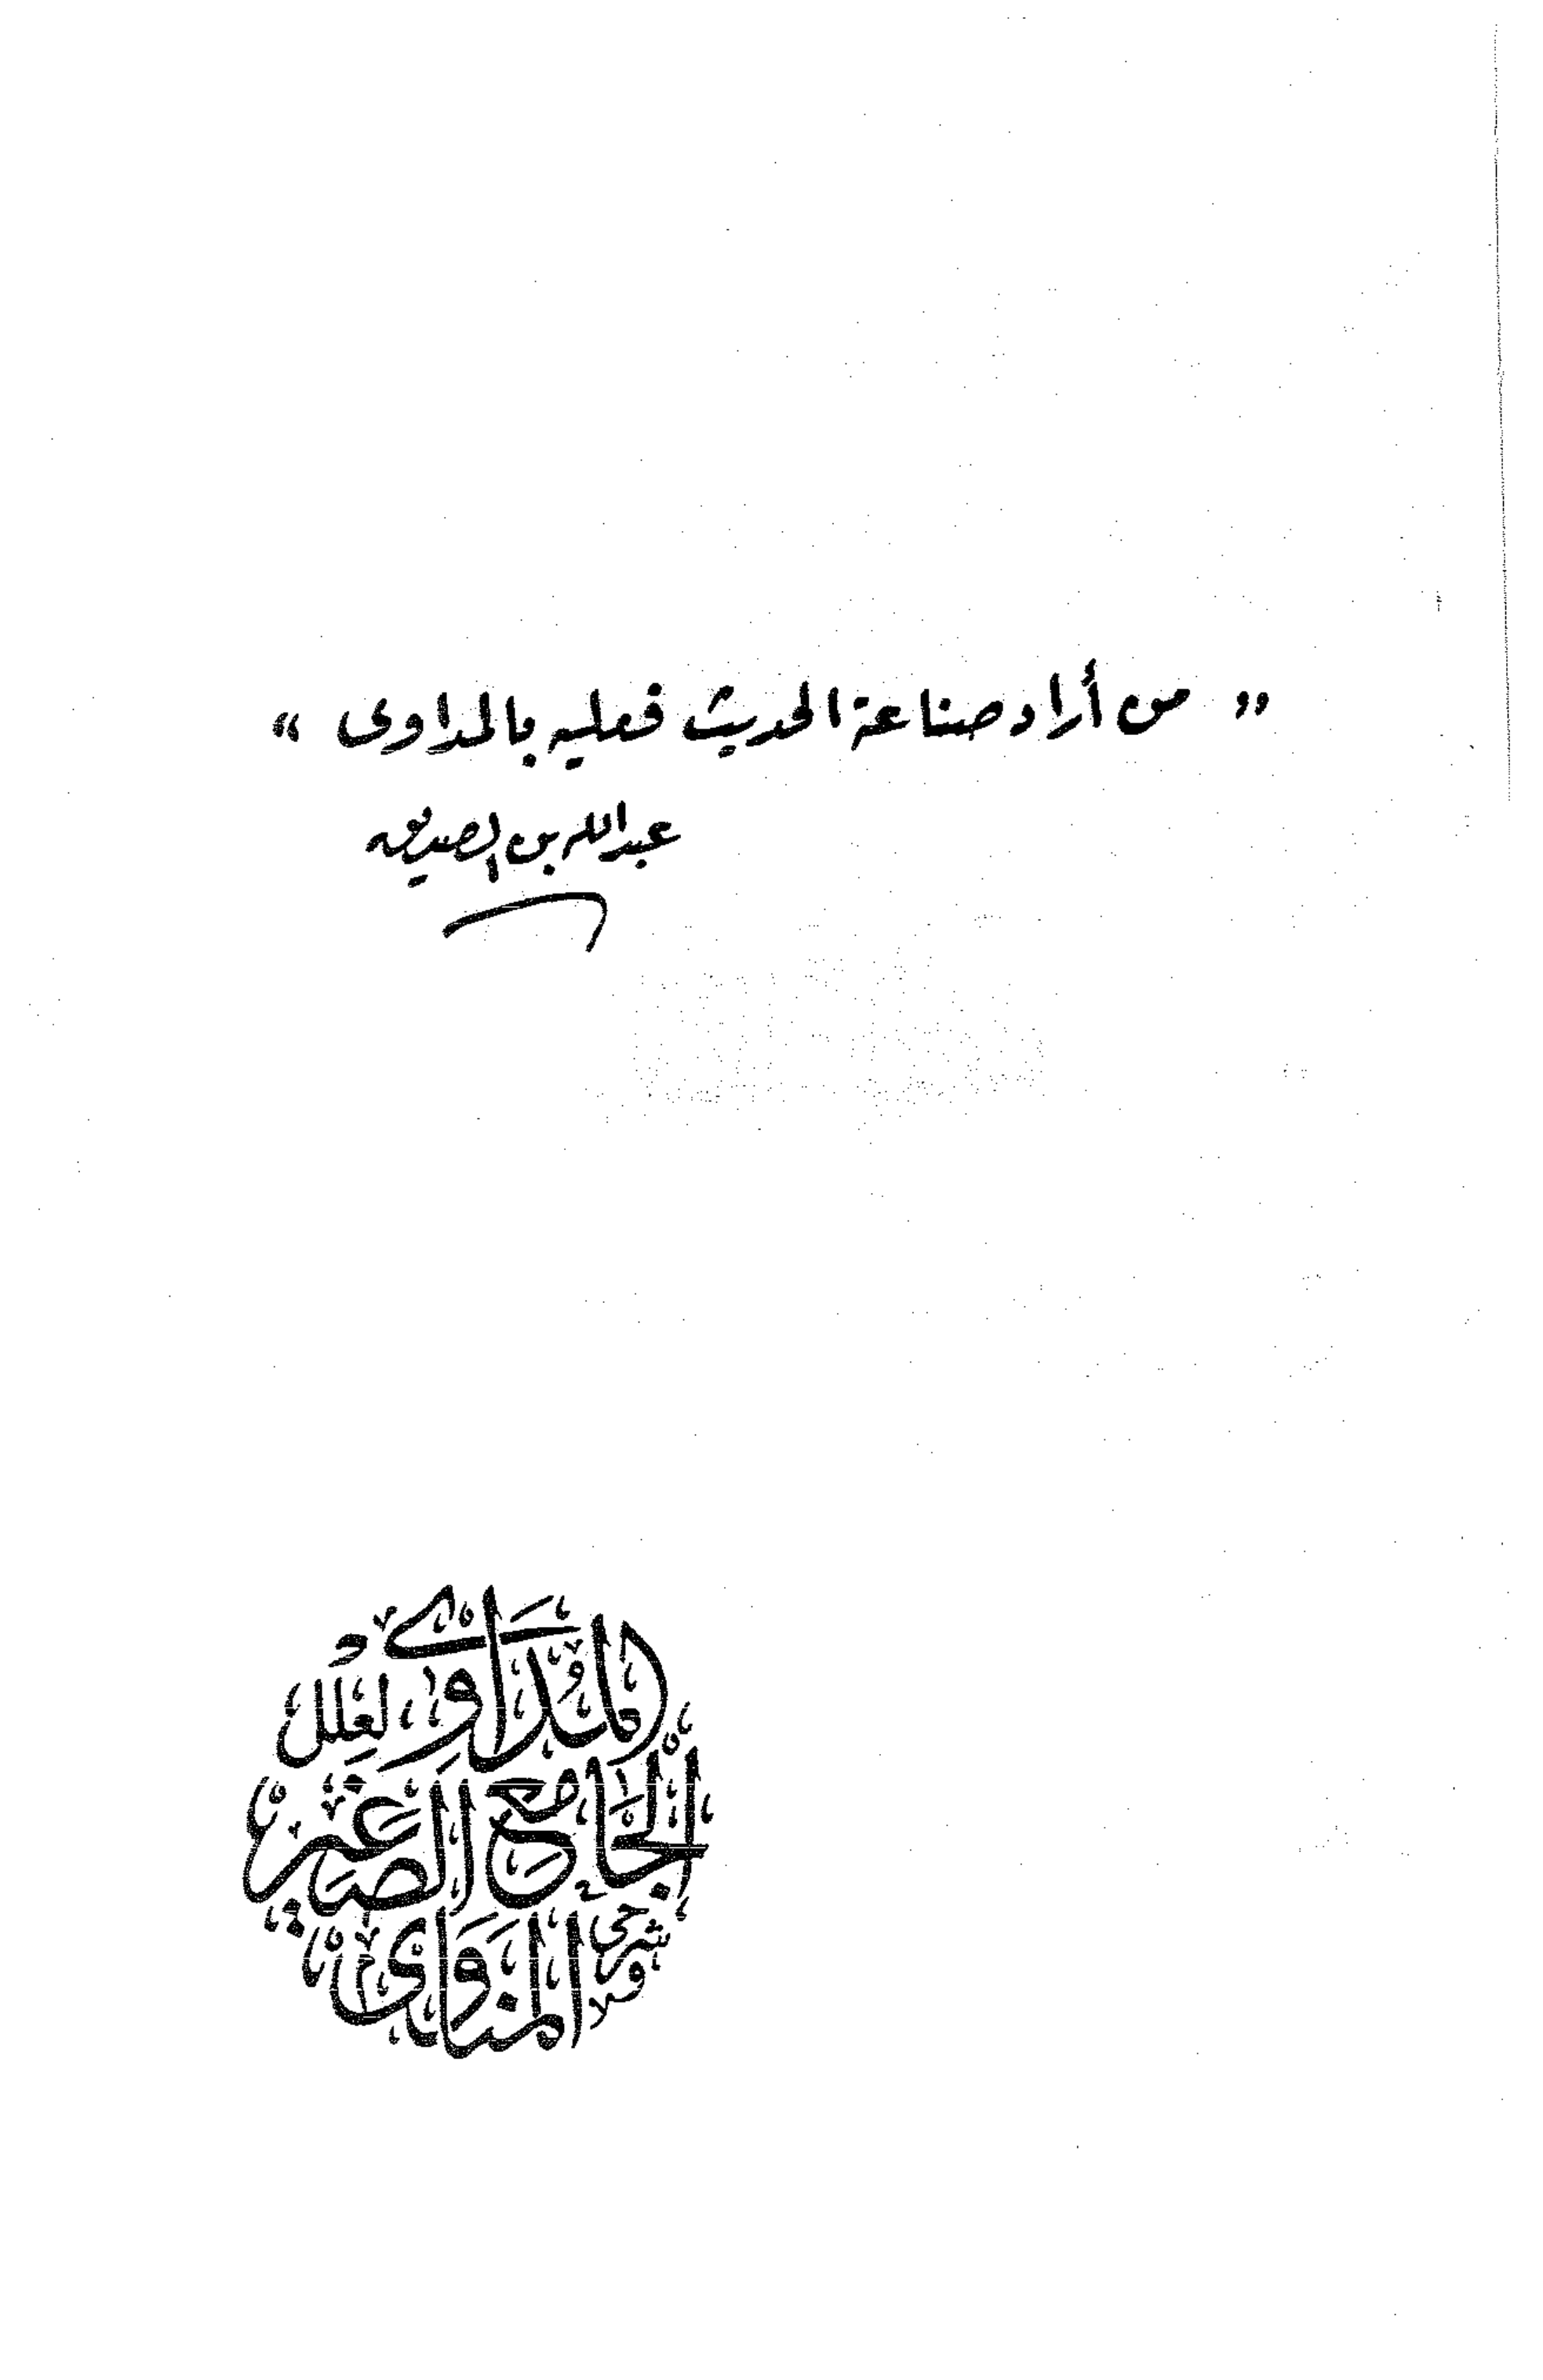 « من أراد صناعة الحديث فعليه بالمداوى »
عبد الله بن الصديق
المُدَاوِي لِعِلَلِ
الجَامِعِ الصَّغِيرِ
وشرحي
المُنَاوِي